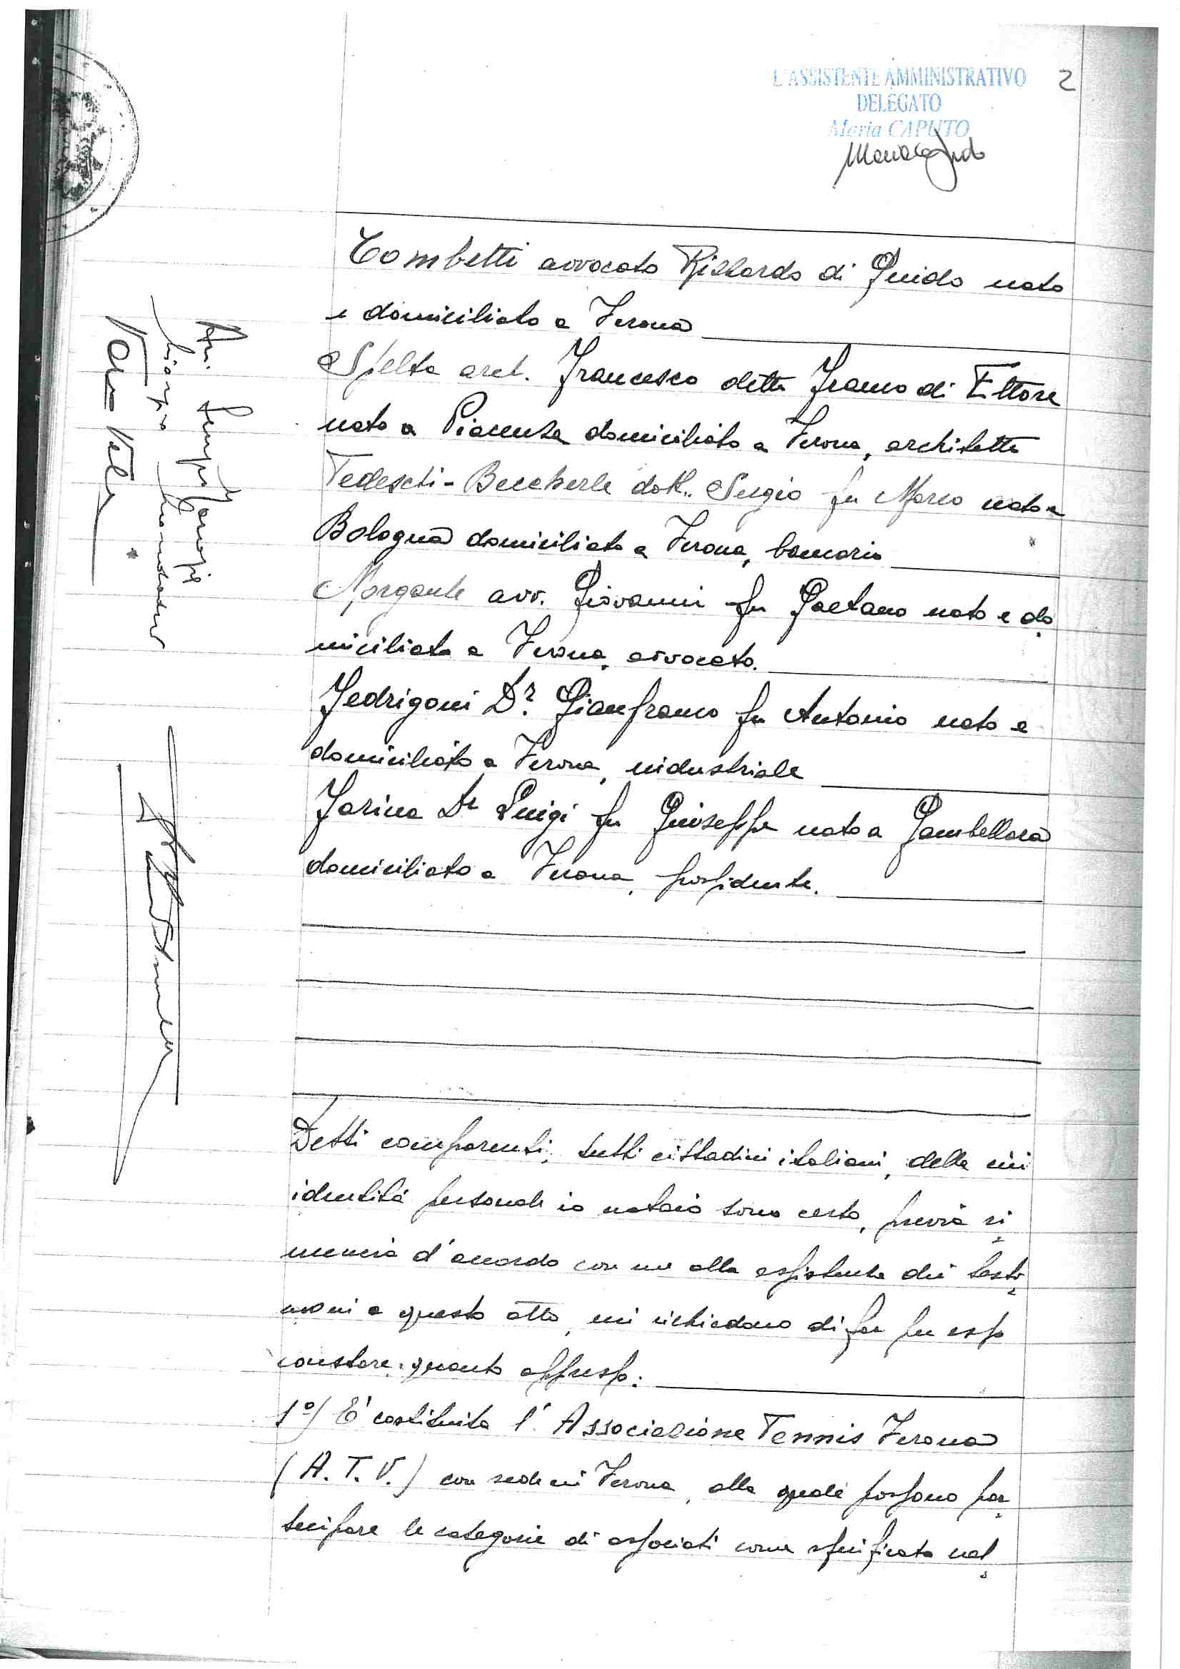 L'ASSISTENTE AMMINISTRATIVO
DELEGATO
Maria CAPUTO
2
Tombetti avvocato Riccardo di Guido nato
e domiciliato a Verona
Spelta arch. Francesco detto Franco di Ettore
nato a Piacenza domiciliato a Verona, architetto
Tedeschi-Beccherle dott. Sergio fu Marco nato a
Bologna domiciliato a Verona, bancario
Morgante avv. Giovanni fu Gaetano nato e do
miciliato a Verona, avvocato.
Fedrigoni Dr. Gianfranco fu Antonio nato e
domiciliato a Verona, industriale
Farina Dr Luigi fu Giuseppe nato a Gambellara
domiciliato a Verona, possidente.
Detti comparenti, tutti cittadini italiani, della cui
identità personale io notaio sono certo, previa ri
nuncia d'accordo con me alla assistenza dei testi
moni a questo atto, mi richiedono di far per esso
constare quanto appresso:
1º) E' costituita l'Associazione Tennis Verona
(A.T.V.) con sede in Verona, alla quale possono par
tecipare le categorie di associati come specificato nel